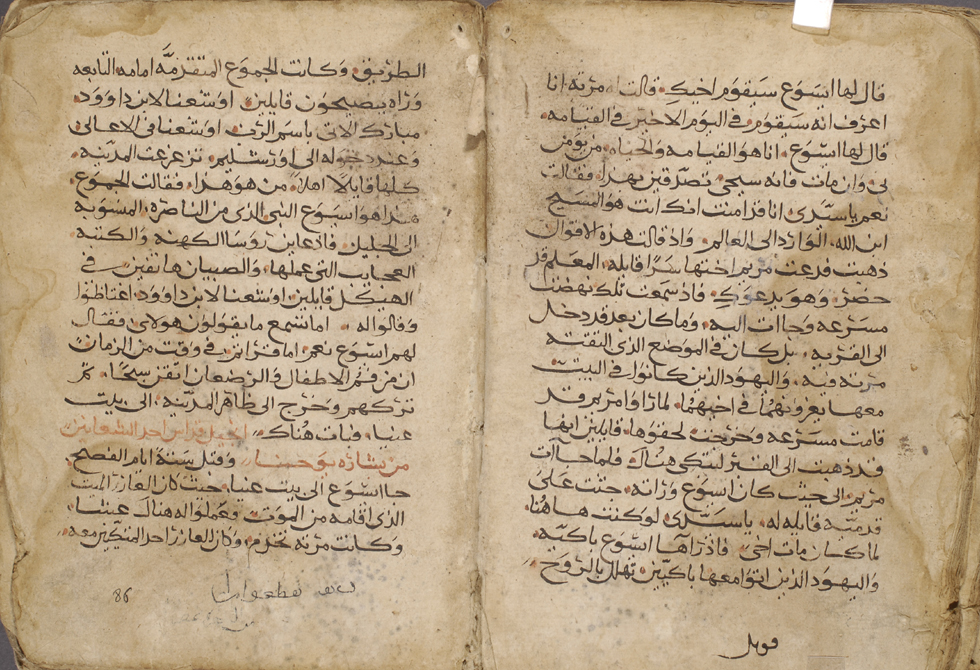 قال لها ايسوع سيقوم اخيك قالت له مرته انا
اعرف انه سيقوم في اليوم الاخير في القيامه
قال لها ايسوع انا هو القيامه والحياه من يومن
بي وان مات فانه سيحيى تصدقين بهذا فقالت
نعم يا سيدي انا قد امنت انك انت هو المسيح
ابن الله الوارد الى العالم واذ قالت هذه الاقوال
ذهبت فدعت مريم اختها سرا قايله المعلم قد
حضر وهو يدعوك فاذ سمعت تلك نهضت
مسرعه وجاات اليه وما كان بعد قد دخل
الى القريه بل كان في الموضع الذي التقته
مرته فيه واليهود الذين كانوا في البيت
معها يعزونهما في اخيهما لما راوا مريم قد
قامت مسرعه وخرجت لحقوها قايلين انها
قد ذهبت الى القبر لتبكي هناك فلما جاات
مريم الى حيث كان ايسوع وراته جثت على
قدميه قايله له يا سيدي لو كنت هاهنا
لما كان مات اخي فاذ راها ايسوع باكيه
واليهود الذين اتوا معها باكيين تهلل بالروح
قويل
الطريق وكانت الجموع المتقدمه امامه التابعه
وراه يصيحون قايلين اوشعنا لابن داوود
مبارك الاتي باسم الرب اوشعنا في الاعالى
وعند دخوله الى اورشليم تزعزعت المدينه
كلها قايلا من هو هذا فقالت الجموع
هذا هو ايسوع النبي الذي من الناصره المنسوبه
الى الجليل فاذ عاين روسا الكهنه والكتبه
العجايب التي عملها والصبيان هاتفين في
الهيكل قايلين اوشعنا لابن داوود اغتاظوا
وقالوا له اما تسمع ما يقولون هولاي فقال
لهم ايسوع نعم اما قراتم في وقت من الزمان
ان من فم الاطفال والرضعان اتقن سبحا ثم
تركهم وخرج الى ظاهر المدينه الى بيت
عنيا وبات هناك انجيل قداس احد الشعانين
من بشاره يوحنا وقبل ستة ايام الفصح
جا ايسوع الى بيت عنيا حيث كان العازر الميت
الذي اقامه من الموت فعملوا له هناك عشا
وكانت مرته تخدم وكان العازر احد المتكيين معه
86